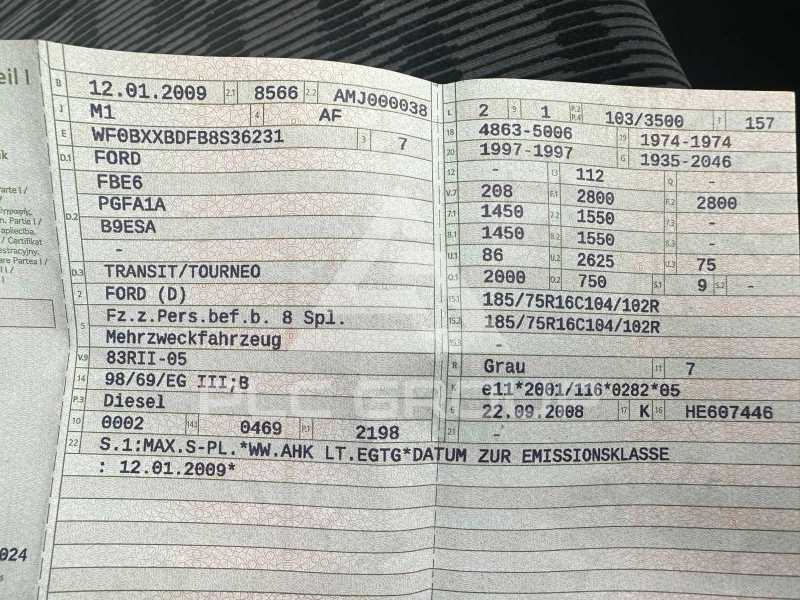 eil I
B 12.01.2009 2.1 8566 2.2 AMJ000038
J M1 4 AF
E WF0BXXBDFB8S36231 3 7
D.1 FORD
FBE6
D.2 PGFA1A
B9ESA
-
D.3 TRANSIT/TOURNEO
2 FORD (D)
5 Fz.z.Pers.bef.b. 8 Spl.
Mehrzweckfahrzeug
V.9 83RII-05
14 98/69/EG III;B
P.3 Diesel
10 0002 14.1 0469 P.1 2198
L 2 9 1 P.2 P.4 103/3500 T 157
18 4863-5006 19 1974-1974
20 1997-1997 G 1935-2046
12 - 13 112 Q -
V.7 208 F.1 2800 F.2 2800
7.1 1450 7.2 1550 7.3 -
8.1 1450 8.2 1550 8.3 -
U.1 86 U.2 2625 U.3 75
O.1 2000 O.2 750 S.1 9 S.2 -
15.1 185/75R16C104/102R
15.2 185/75R16C104/102R
15.3 -
R Grau 11 7
K e11*2001/116*0282*05
6 22.09.2008 17 K 16 HE607446
21 -
22 S.1:MAX.S-PL.*WW.AHK LT.EGTG*DATUM ZUR EMISSIONSKLASSE
: 12.01.2009*
Parte I /
Partie I /
apliecība.
/ Certifikat
are Partea I /
024
PLC GROUP